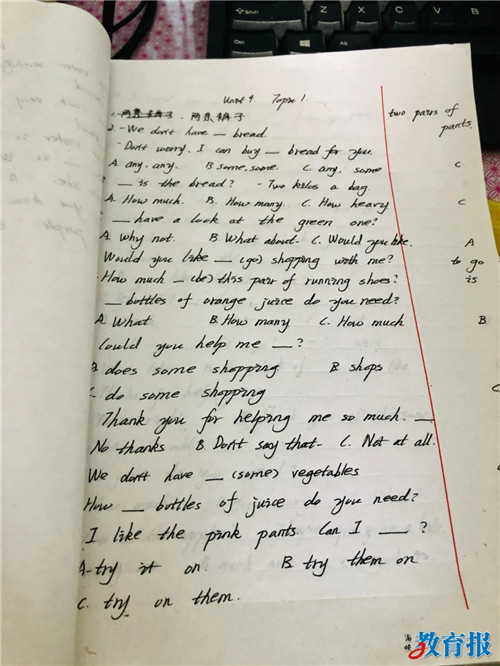 Unit 4 Topic 1.
1. 两条裤子. 两条裤子 two pairs of pants.
2. -We don't have __ bread.
-Don't worry. I can buy __ bread for you.
A. any, any. B. some, some. C. any, some C
__ is the bread? - Two kilos a bag
A. How much. B. How many. C. How heavy C
__ have a look at the green one?
A. Why not. B. What about. C. Would you like. A
Would you like __ (go) shopping with me? to go
How much __ (be) this pair of running shoes? is
__ bottles of orange juice do you need?
A. What B. How many C. How much B
Could you help me __ ?
A. does some shopping B. shops
C. do some shopping C
Thank you for helping me so much. __
No thanks B. Don't say that. C. Not at all.
We don't have __ (some) vegetables
How __ bottles of juice do you need?
I like the pink pants Can I __ ?
A. try it on. B. try them on
C. try on them.
教育报